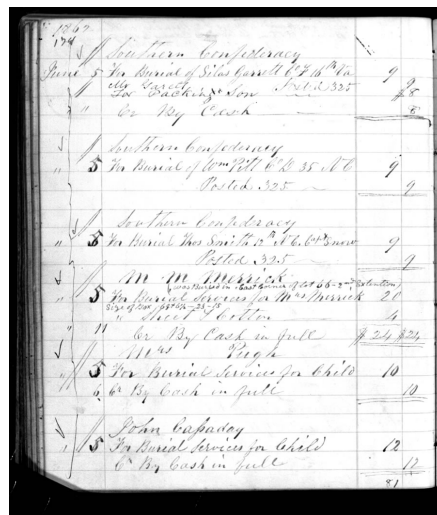 1862
174
Southern Confederacy
June 5 For Burial of Silas Garrett Co F 16th Va 9
Mr Garett Posted 325 9
For Packing Son $8
" Cr By Cash 8
Southern Confederacy
" 5 For Burial of Wm Pitt Co D 35 N C 9
Posted 325 9
Southern Confederacy
" 5 For Burial Thos Smith 12th N C Capt Snow 9
Posted 325 9
M. M. Merrick
was Buried in East Corner of Lot
" 5 For Burial Services for Mrs Merrick 20
Size of Box
" Sheet & Cotton 4
Cr By Cash in full $24 $24
Mrs Pugh
" 5 For Burial Services for Child 10
6 Cr By Cash in full 10
John Cassaday
" 5 For Burial Services for Child 12
Cr By Cash in full 12
81